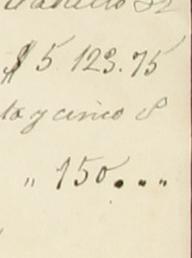 $ 5 123.75
ta y cinco
„ 150. . „